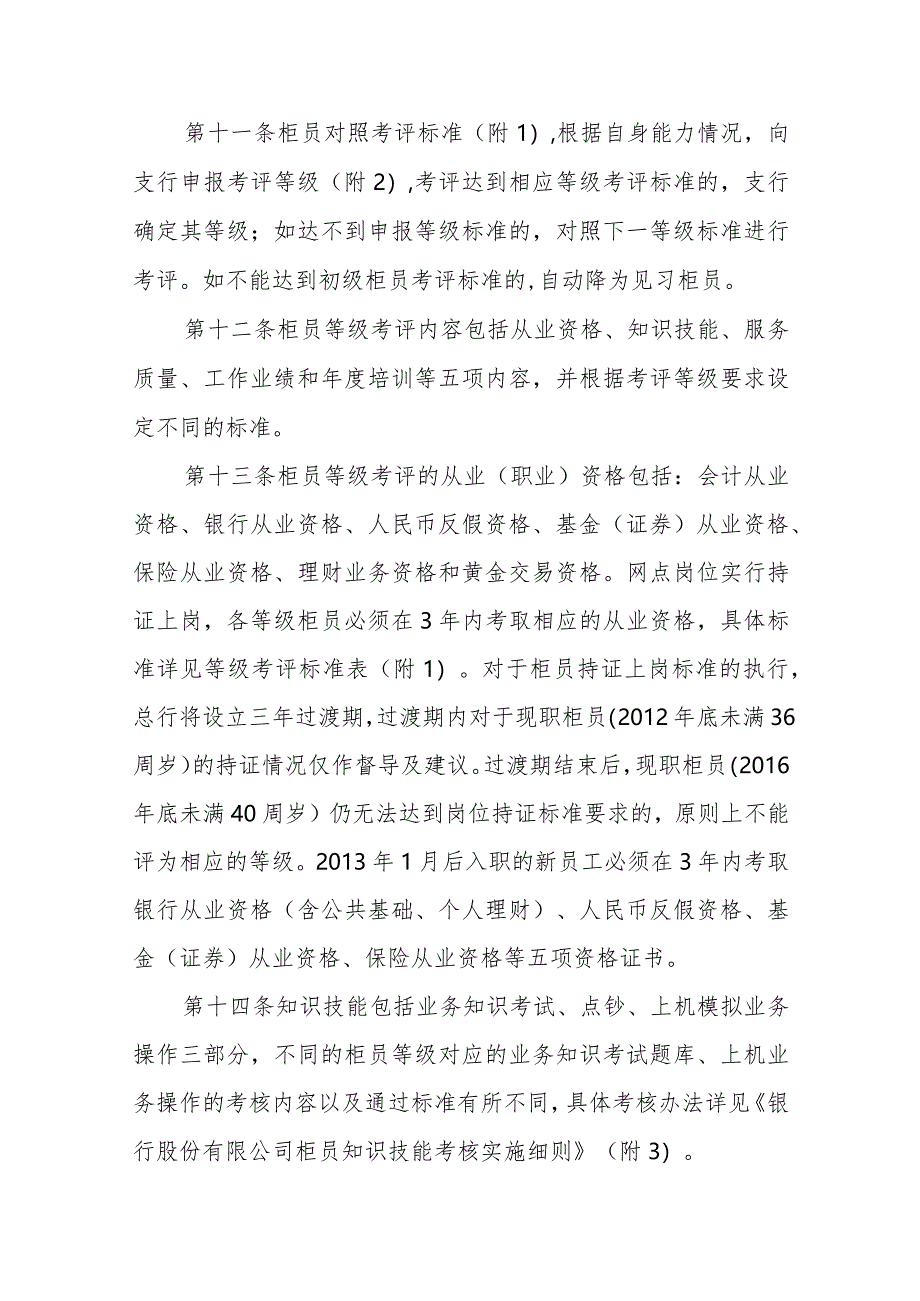 第十一条柜员对照考评标准（附1）,根据自身能力情况，向
支行申报考评等级（附2）,考评达到相应等级考评标准的，支行
确定其等级；如达不到申报等级标准的，对照下一等级标准进行
考评。如不能达到初级柜员考评标准的,自动降为见习柜员。
第十二条柜员等级考评内容包括从业资格、知识技能、服务
质量、工作业绩和年度培训等五项内容，并根据考评等级要求设
定不同的标准。
第十三条柜员等级考评的从业（职业）资格包括：会计从业
资格、银行从业资格、人民币反假资格、基金（证券）从业资格、
保险从业资格、理财业务资格和黄金交易资格。网点岗位实行持
证上岗，各等级柜员必须在3年内考取相应的从业资格，具体标
准详见等级考评标准表（附1）。对于柜员持证上岗标准的执行，
总行将设立三年过渡期，过渡期内对于现职柜员(2012年底未满36
周岁)的持证情况仅作督导及建议。过渡期结束后，现职柜员(2016
年底未满40周岁）仍无法达到岗位持证标准要求的，原则上不能
评为相应的等级。2013年1月后入职的新员工必须在3年内考取
银行从业资格（含公共基础、个人理财）、人民币反假资格、基
金（证券）从业资格、保险从业资格等五项资格证书。
第十四条知识技能包括业务知识考试、点钞、上机模拟业务
操作三部分，不同的柜员等级对应的业务知识考试题库、上机业
务操作的考核内容以及通过标准有所不同，具体考核办法详见《银
行股份有限公司柜员知识技能考核实施细则》（附3）。